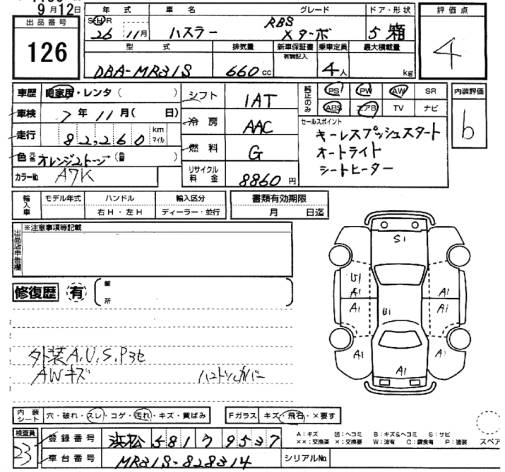 9月12日
出品番号
126
年式 車名 グレード ドア・形状
26年 11月 ハスラー RBS Xターボ 5 箱
評価点
4
型式 排気量 新車保証書 乗車定員 最大積載量
DBA-MR31S 660cc 4人 kg
車歴 自家用・レンタ( )
車検 7年11月( 日)
走行 82,260 km マイル
色 オレンジ2トーン
カラーNo A7K
シフト 1AT
冷房 AAC
燃料 G
リサイクル料金 8860円
純正のみ PS PW AW SR
ABS エアB TV ナビ
内装評価
b
セールスポイント
キーレスプッシュスタート
オートライト
シートヒーター
輸入車 モデル年式 ハンドル 輸入区分 書類有効期限
年 右H・左H ディーラー・並行 月 日迄
※注意事項等記載
修復歴 有 箇所
S1
U1 A1
A1 B1 A1
A1 A1
A1
外装A.U.S.Pスモ
AWキズ
内装シート 穴・破れ・スレ・コゲ・汚れ・キズ・黄ばみ Fガラス キズ・飛石・×要す
A:キズ U:ヘコミ B:キズ&ヘコミ S:サビ
××:交換済 ×:交換要 W:波有 C:腐食有 P:塗装
スペア
検査員 23
登録番号 浜松 581 ワ 9537
車台番号 MR31S-828314 シリアルNo.